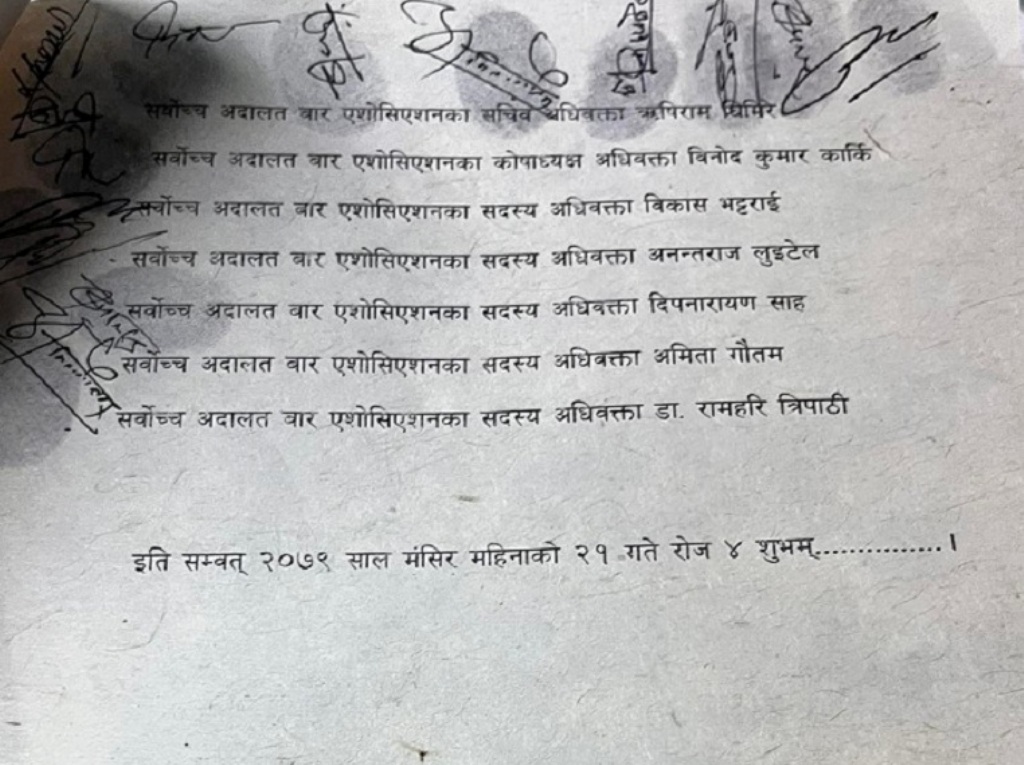 सर्वोच्च अदालत बार एशोसिएशनका सचिव अधिवक्ता ऋषिराम घिमिरे
सर्वोच्च अदालत बार एशोसिएशनका कोषाध्यक्ष अधिवक्ता विनोद कुमार कार्कि
सर्वोच्च अदालत बार एशोसिएशनका सदस्य अधिवक्ता विकास भट्टराई
सर्वोच्च अदालत बार एशोसिएशनका सदस्य अधिवक्ता अनन्तराज लुइटेल
सर्वोच्च अदालत बार एशोसिएशनका सदस्य अधिवक्ता दिपनारायण साह
सर्वोच्च अदालत बार एशोसिएशनका सदस्य अधिवक्ता अमिता गौतम
सर्वोच्च अदालत बार एशोसिएशनका सदस्य अधिवक्ता डा. रामहरि त्रिपाठी
इति सम्वत् २०७९ साल मंसिर महिनाको २१ गते रोज ४ शुभम्...............।